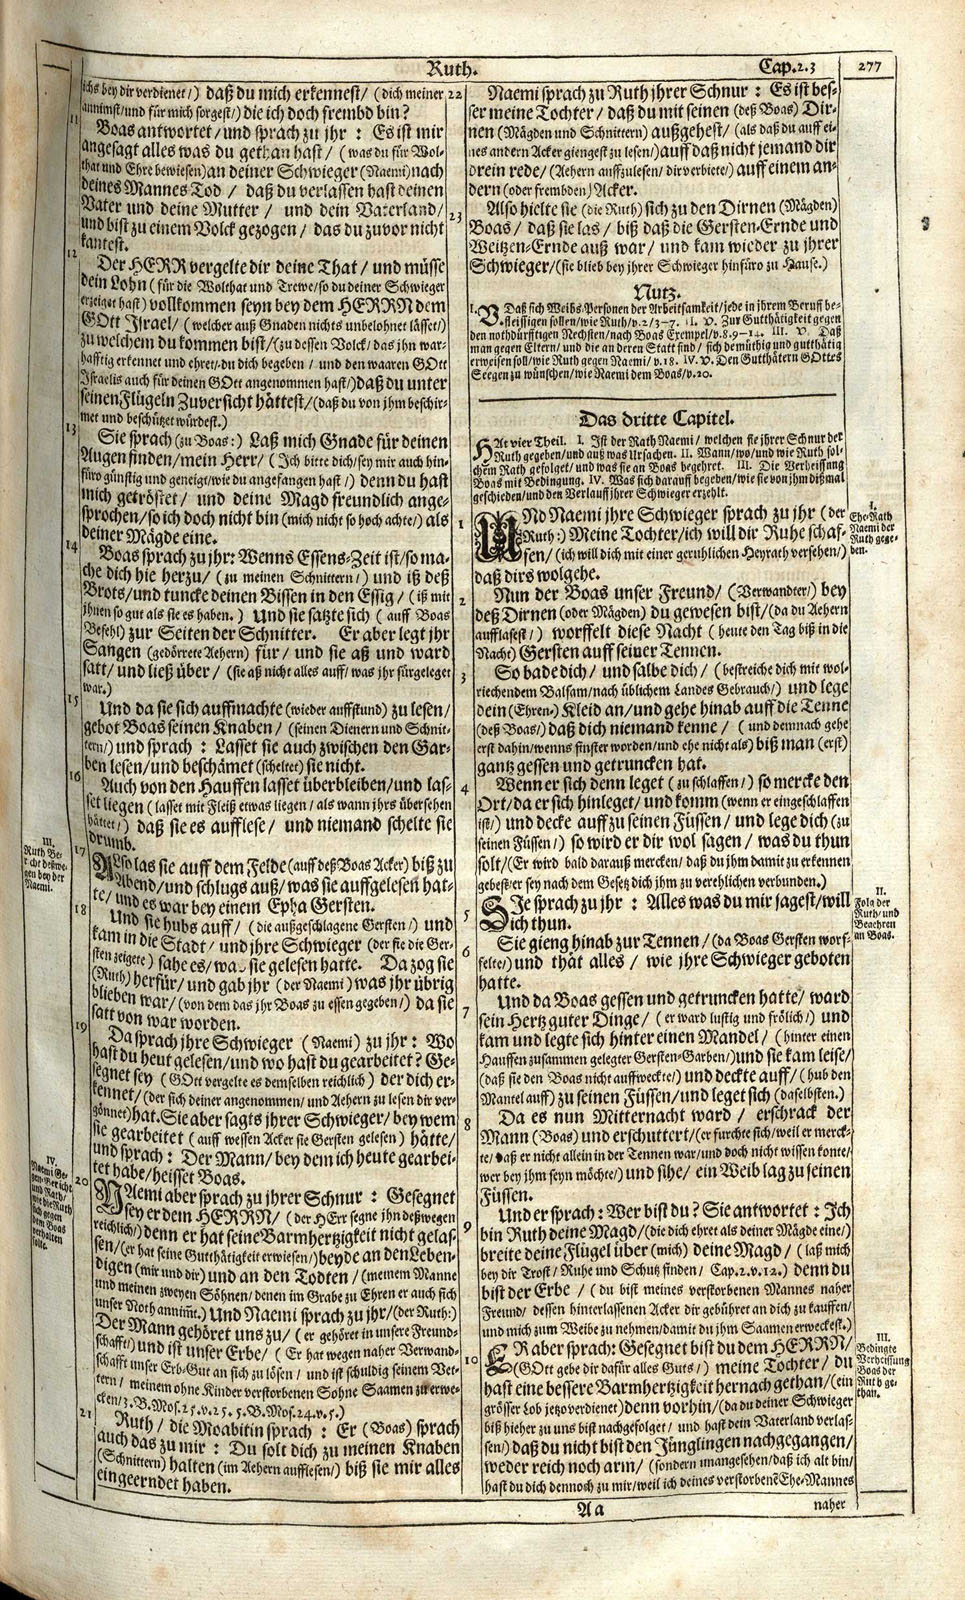 Ruth.
Cap.2.3
277
ichs bey dir verdienet/) daß du mich erkennest/ (dich meiner
annimst/und für mich sorgest/) die ich doch frembd bin?
11
Boas antwortet/und sprach zu jhr: Es ist mir
angesagt alles was du gethan hast/ (was du für Wol-
that und Ehre bewiesen) an deiner Schwieger (Naemi) nach
deines Mannes Tod/ daß du verlassen hast deinen
Vater und deine Mutter/ und dein Vaterland/
und bist zu einem Volck gezogen/ das du zuvor nicht
kantest.
12
Der HERR vergelte dir deine That/ und müsse
dein Lohn (für die Wolthat und Trewe/so du deiner Schwieger
erzeiget hast) vollkommen seyn bey dem HERRN dem
GOtt Israel/ (welcher auß Gnaden nichts unbelohnet lässet/)
zu welchem du kommen bist/(zu dessen Volck/das jhn war-
hafftig erkennet und ehret/du dich begeben/ und den waaren GOtt
Israelis auch für deinen GOtt angenommen hast/) daß du unter
seinen Flügeln Zuversicht hättest/(daß du von jhm beschir-
met und beschützet würdest.)
13
Sie sprach (zu Boas:) Laß mich Gnade für deinen
Augen finden/mein Herr/ (Ich bitte dich/sey mir auch hin-
füro günstig und geneigt/wie du angefangen hast/) denn du hast
mich getröstet/ und deine Magd freundlich ange-
sprochen/so ich doch nicht bin (mich nicht so hoch achte/) als
deiner Mägde eine.
14
Boas sprach zu jhr: Wenns Essens-Zeit ist/so ma-
che dich hie herzu/ (zu meinen Schnittern/) und iß deß
Brots/und tuncke deinen Bissen in den Essig/ (iß mit
jhnen so gut als sie es haben.) Und sie satzte sich (auff Boas
Befehl) zur Seiten der Schnitter. Er aber legt jhr
Sangen (gedörrete Aehern) für/ und sie aß und ward
satt/ und ließ über/ (sie aß nicht alles auff/was jhr fürgeleget
war.)
15
Und da sie sich auffmachte (wieder auffstund) zu lesen/
gebot Boas seinen Knaben/ (seinen Dienern und Schnit-
tern/) und sprach: Lasset sie auch zwischen den Gar-
ben lesen/und beschämet (scheltet) sie nicht.
16
Auch von den Hauffen lasset überbleiben/und las-
set liegen (lasset mit Fleiß etwas liegen/als wann jhrs übersehen
hättet/) daß sie es aufflese/ und niemand schelte sie
drumb.
III.
Ruth Be-
richt deßwe-
gen bey der
Naemi.
17
Also las sie auff dem Felde (auff deß Boas Acker) biß zu
Abend/und schlugs auß/was sie auffgelesen hat-
te/ und es war bey einem Epha Gersten.
18
Und sie hubs auff/ (die außgeschlagene Gersten/) und
kam in die Stadt/ und jhre Schwieger (der sie die Ger-
sten zeigete) sahe es/was sie gelesen hatte. Da zog sie
(Ruth) herfür/ und gab jhr (der Naemi) was jhr übrig
blieben war/(von dem das jhr Boas zu essen gegeben/) da sie
satt von war worden.
19
Da sprach jhre Schwieger (Naemi) zu jhr: Wo
hast du heut gelesen/und wo hast du gearbeitet? Ge-
segnet sey (GOtt vergelte es demselben reichlich) der dich er-
kennet/(der sich deiner angenommen/und Aehern zu lesen dir ver-
gönnet) hat. Sie aber sagts jhrer Schwieger/bey wem
sie gearbeitet (auff wessen Acker sie Gersten gelesen) hätte/
und sprach: Der Mann/bey dem ich heute gearbei-
tet habe/heisset Boas.
IV.
Naemi Ge-
gen-Bericht
und Rath/
wie die Ruth
sich gegen
dem Boas
verhalten
solle.
20
NAemi aber sprach zu jhrer Schnur: Gesegnet
sey er dem HERRN/ (der HErr segne jhn deßwegen
reichlich/) denn er hat seine Barmhertzigkeit nicht gelas-
sen/(er hat seine Gutthätigkeit erwiesen/) beyde an den Leben-
digen (mir und dir) und an den Todten/ (meinem Manne
und meinen zweyen Söhnen/denen im Grabe zu Ehren er auch sich
unser Noth annim̃t.) Und Naemi sprach zu jhr/(der Ruth:)
Der Mann gehöret uns zu/ (er gehöret in unsere Freund-
schafft/) und ist unser Erbe/ (Er hat wegen naher Verwand-
schafft unser Erb-Gut an sich zu lösen/ und ist schuldig seinem Vet-
tern/ meinem ohne Kinder verstorbenen Sohne Saamen zu erwe-
cken/3.B.Mos.25.v.25.5.B.Mos.24.v.5.)
21
Ruth/ die Moabitin sprach: Er (Boas) sprach
auch das zu mir: Du solt dich zu meinen Knaben
(Schnittern) halten (im Aehern aufflesen/) biß sie mir alles
eingeerndet haben.
22
Naemi sprach zu Ruth jhrer Schnur: Es ist bes-
ser meine Tochter/ daß du mit seinen (deß Boas) Dir-
nen (Mägden und Schnittern) außgehest/ (als daß du auff ei-
nes andern Acker giengest zu lesen/) auff daß nicht jemand dir
drein rede/ (Aehern auffzulesen/dir verbiete/) auff einem an-
dern (oder frembden) Acker.
23
Also hielte sie (die Ruth) sich zu den Dirnen (Mägden)
Boas/ daß sie las/ biß daß die Gersten-Ernde und
Weitzen-Ernde auß war/ und kam wieder zu jhrer
Schwieger/(sie blieb bey jhrer Schwieger hinfüro zu Hause.)
Nutz.
I. V. Daß sich Weibs-Personen der Arbeitsamkeit/jede in jhrem Beruff be-
fleissigen sollen/wie Ruth/v.2/3-7. II. V. Zur Gutthätigkeit gegen
den nothdürfftigen Nechsten/nach Boas Exempel/v.8.9-14. III. V. Daß
man gegen Eltern/ und die an deren Statt sind/ sich demüthig und gutthätig
erweisen soll/wie Ruth gegen Naemi/v.18. IV. V. Den Gutthätern GOttes
Seegen zu wünschen/wie Naemi dem Boas/v.20.
Das dritte Capitel.
HAt vier Theil. I. Ist der Rath Naemi/ welchen sie jhrer Schnur der
Ruth gegeben/und auß was Ursachen. II. Wann/wo/und wie Ruth sol-
chem Rath gefolget/und was sie an Boas begehret. III. Die Verheissung
Boas mit Bedingung. IV. Was sich darauff begeben/wie sie von jhm dißmal
geschieden/und den Verlauff jhrer Schwieger erzehlt.
I.
Ehe-Rath
Naemi der
Ruth gege-
ben.
1
UNd Naemi jhre Schwieger sprach zu jhr (der
Ruth:) Meine Tochter/ich will dir Ruhe schaf-
fen/ (ich will dich mit einer geruhlichen Heyrath versehen/)
daß dirs wolgehe.
2
Nun der Boas unser Freund/ (Verwandter/) bey
deß Dirnen (oder Mägden) du gewesen bist/(da du Aehern
aufflasest/) worffelt diese Nacht (heute den Tag biß in die
Nacht) Gersten auff seiner Tennen.
3
So bade dich/ und salbe dich/ (bestreiche dich mit wol-
riechendem Balsam/nach üblichem Landes Gebrauch/) und lege
dein (Ehren-) Kleid an/und gehe hinab auff die Tenne
(deß Boas/) daß dich niemand kenne/ (und demnach gehe
erst dahin/wenns finster worden/und ehe nicht als) biß man (erst)
gantz gessen und getruncken hat.
4
Wenn er sich denn leget (zu schlaffen/) so mercke den
Ort/da er sich hinleget/ und komm (wenn er eingeschlaffen
ist/) und decke auff zu seinen Füssen/ und lege dich (zu
seinen Füssen/) so wird er dir wol sagen/ was du thun
solt/(Er wird bald darauß mercken/ daß du jhm damit zu erkennen
gebest/er sey nach dem Gesetz dich jhm zu verehlichen verbunden.)
II.
Folg der
Ruth/und
Begehren
an Boas.
5
SIe sprach zu jhr: Alles was du mir sagest/will
ich thun.
6
Sie gieng hinab zur Tennen/(da Boas Gersten worf-
felte/) und thät alles/ wie jhre Schwieger geboten
hatte.
7
Und da Boas gessen und getruncken hatte/ ward
sein Hertz guter Dinge/ (er ward lustig und frölich/) und
kam und legte sich hinter einen Mandel/ (hinter einen
Hauffen zusammen gelegter Gersten-Garben/) und sie kam leise/
(daß sie den Boas nicht auffweckte/) und deckte auff/ (hub den
Mantel auff) zu seinen Füssen/und leget sich (daselbsten.)
8
Da es nun Mitternacht ward/ erschrack der
Mann (Boas) und erschuttert/(er furchte sich/weil er merck-
te/daß er nicht allein in der Tennen war/und doch nicht wissen konte/
wer bey jhm seyn möchte/) und sihe/ ein Weib lag zu seinen
Füssen.
9
Und er sprach: Wer bist du? Sie antwortet: Ich
bin Ruth deine Magd/(die dich ehret als deiner Mägde eine/)
breite deine Flügel über (mich) deine Magd/ (laß mich
bey dir Trost/ Ruhe und Schutz finden/ Cap.2.v.12.) denn du
bist der Erbe/ (du bist meines verstorbenen Mannes naher
Freund/ dessen hinterlassenen Acker dir gebühret an dich zu kauffen/
und mich zum Weibe zu nehmen/damit du jhm Saamen erweckest.)
III.
Bedingte
Verheissung
Boas der
Ruth ge-
than.
10
ER aber sprach: Gesegnet bist du dem HERRN/
(GOtt gebe dir dafür alles Guts/) meine Tochter/ du
hast eine bessere Barmhertzigkeit hernach gethan/(ein
grösser Lob jetzo verdienet) denn vorhin/(da du deiner Schwieger
biß hieher zu uns bist nachgefolget/ und hast dein Vaterland verlas-
sen/) daß du nicht bist den Jünglingen nachgegangen/
weder reich noch arm/ (sondern unangesehen/daß ich alt bin/
hast du dich dennoch zu mir/weil ich deines verstorbenẽ Ehe-Mannes
Aa
naher